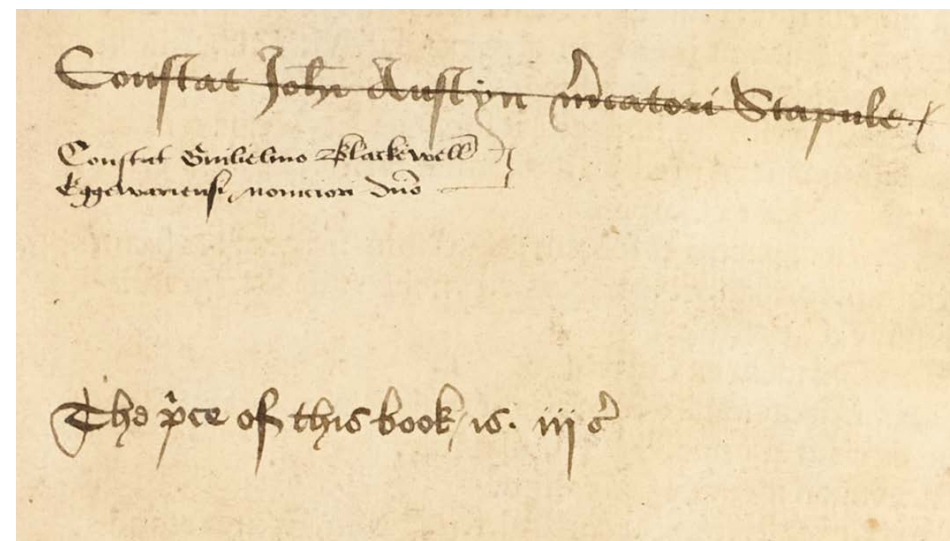 Constat Joh̄i Austyn m̉catori Stapule
Constat Guilielmo Blackewell
Eggewariensi, nouiciori dn̄o
The p̉ce of this book is. iij s̉